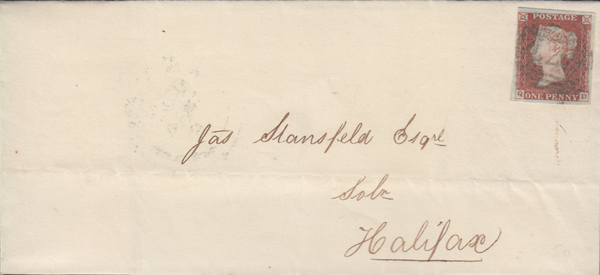 POSTAGE
ONE PENNY
Jas Stansfeld Esqre
Solr
Halifax